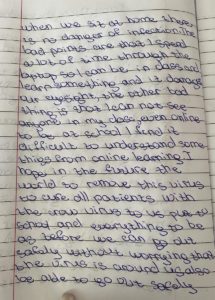 when we sit at home there
is no danger of infection. the
bad points are that I spend
a lot of time through the
laptop so I can be in class and
learn something and it damage
our eyesight. the other bad
thing is that I can not see
anyone in my class even online
to be at school I find it
difficult to understand some
things from online learning. I
hope in the future the
world to remove this virus
to cure all patients with
the virus to us
school and everything to be
as before we can go out
safely without worrying that
the virus is around us also
be able to go out safely